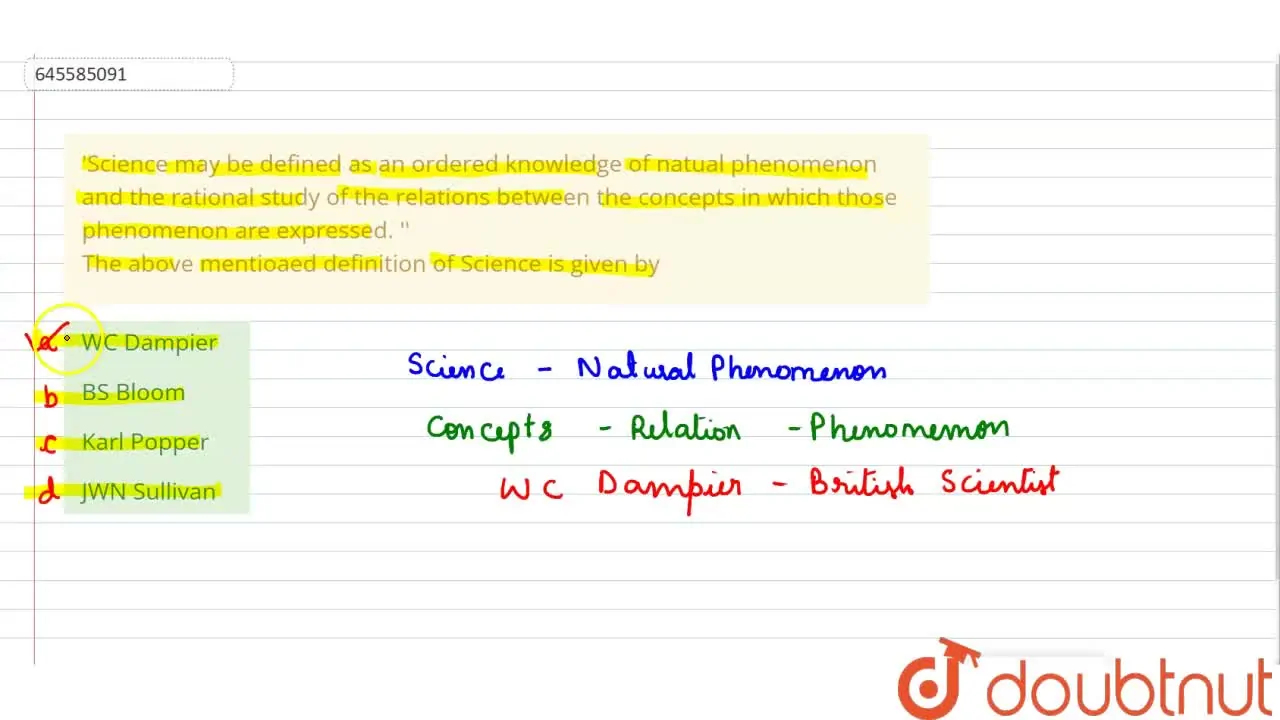 645585091
'Science may be defined as an ordered knowledge of natual phenomenon
and the rational study of the relations between the concepts in which those
phenomenon are expressed. "
The above mentioaed definition of Science is given by
a WC Dampier
b BS Bloom
c Karl Popper
d JWN Sullivan
Science - Natural Phenomenon
Concepts - Relation - Phenomemon
WC Dampier - British Scientist
doubtnut